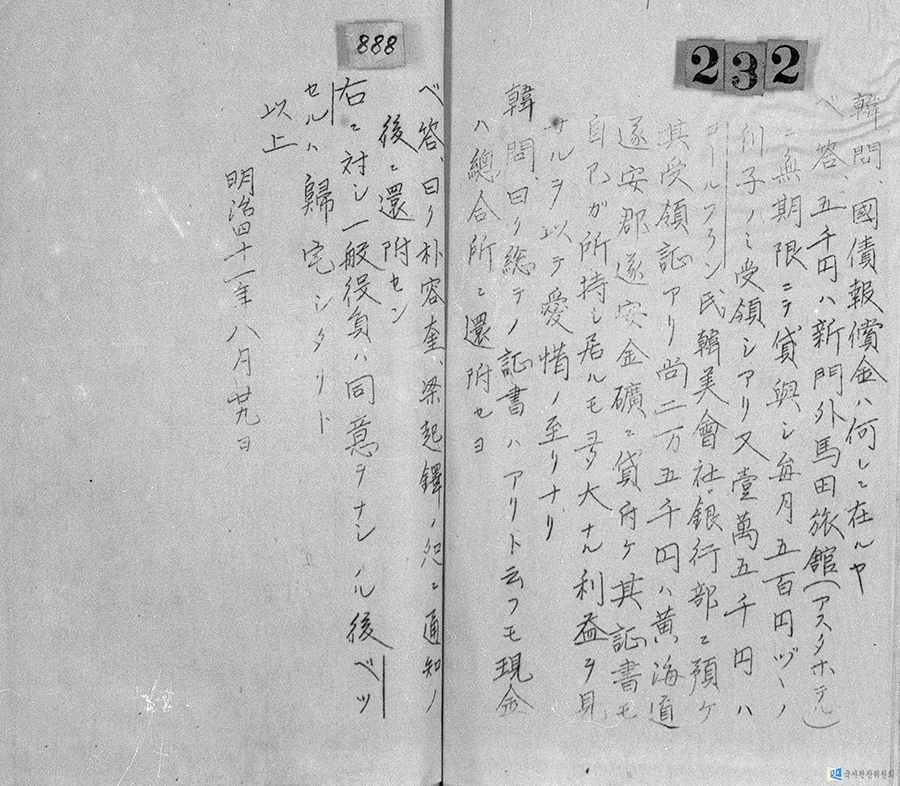 232
韓問、國債報償金ハ何レニ在ルヤ
ベ答、五千円ハ新門外馬田旅館(アスタホテル)
ニ無期限ニテ貸與シ毎月五百円ヅヽノ
利子ノミ受領シアリ又壹萬五千円ハ
コールブラン氏韓美會社銀行部ニ預ケ
其受領証アリ尚二万五千円ハ黄海道
遂安郡遂安金礦ニ貸付ケ其証書モ
自己ガ所持シ居ルモ多大ナル利益ヲ見
サルヲ以テ愛惜ノ至リナリ
韓問、曰ク總テノ証書ハアリト云フモ現金
ハ總合所ニ還附セヨ
888
ベ答、曰ク朴容奎、梁起鐸ノ処ニ通知ノ
後ニ還附セン
右ニ対シ一般役員ハ同意ヲナシタル後ベッ
セルハ歸宅シタリト
以上
明治四十一年八月廿九日
국사편찬위원회